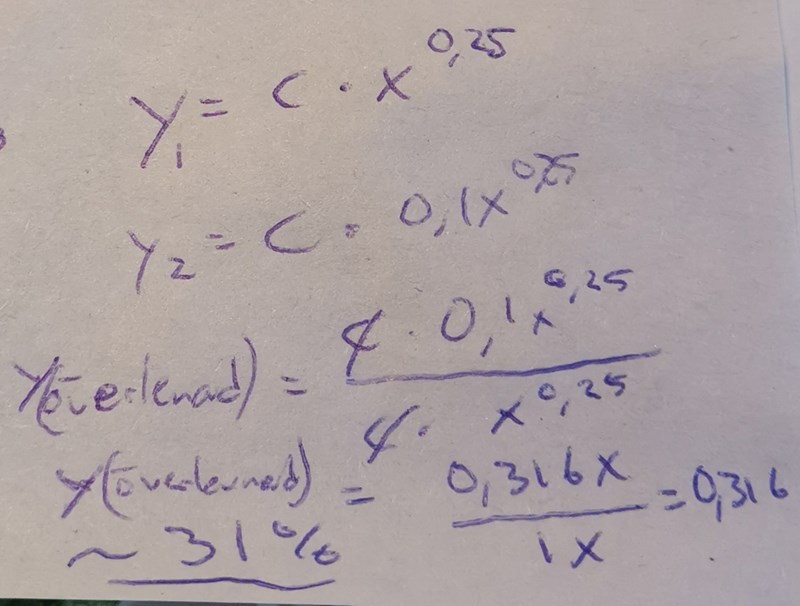 y₁ = C · x^0,25
y₂ = C · 0,1x^0,25
y(överlevnad) = C · 0,1x^0,25 / C · x^0,25
y(överlevnad) = 0,316x / 1x = 0,316
~ 31%